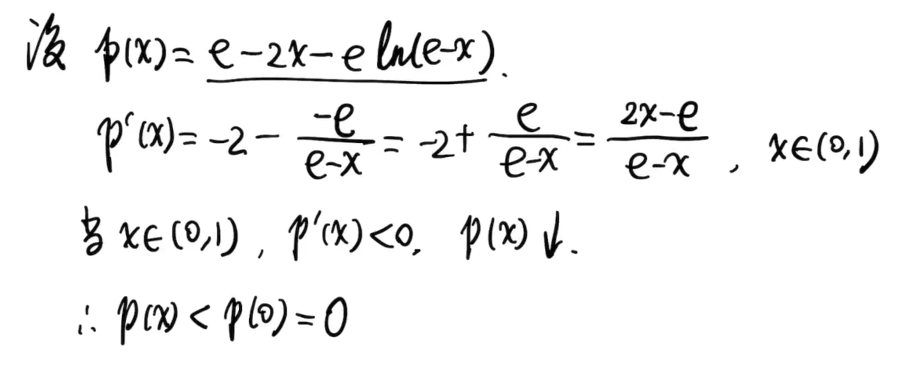 设 p(x)=e-2x-e ln(e-x).
p'(x)=-2-\frac{-e}{e-x}=-2+\frac{e}{e-x}=\frac{2x-e}{e-x}, x∈(0,1)
当 x∈(0,1), p'(x)<0, p(x)↓.
∴ p(x)<p(0)=0